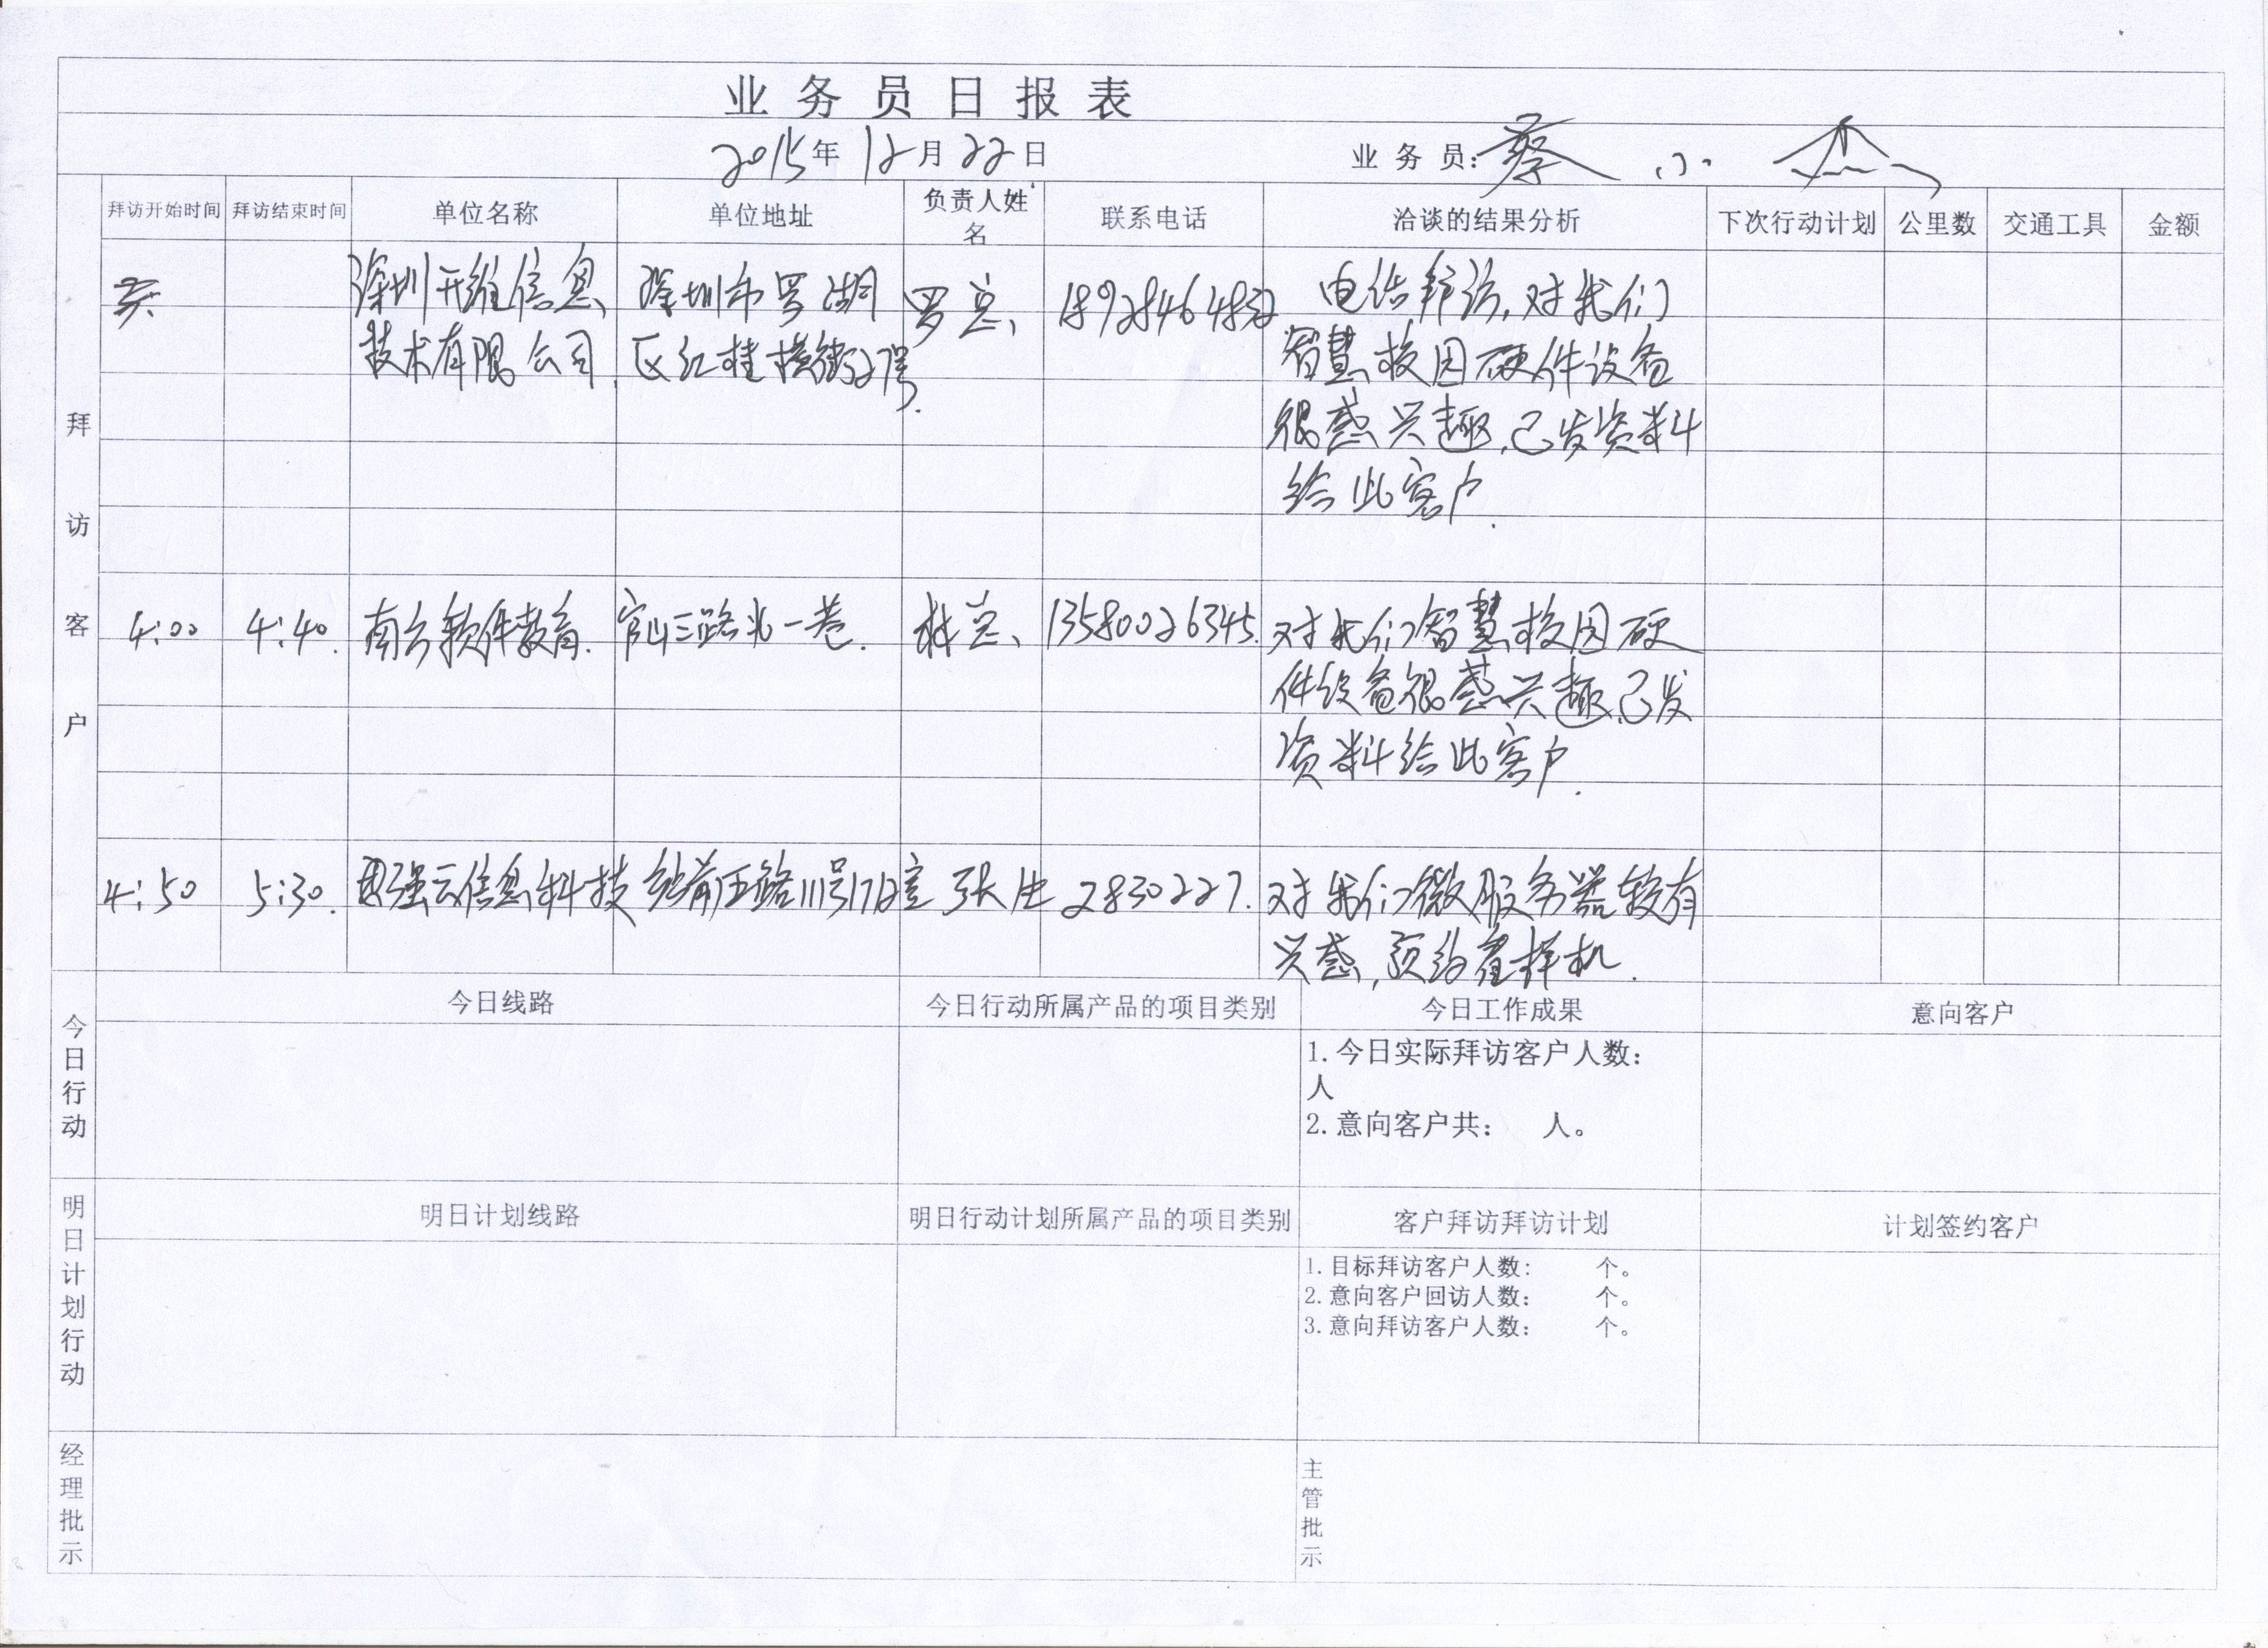 业务员日报表
2015年12月22日 业务员:蔡小
拜访客户
拜访开始时间 拜访结束时间 单位名称 单位地址 负责人姓名 联系电话 洽谈的结果分析 下次行动计划 公里数 交通工具 金额
深圳开维信息 深圳市罗湖 罗总 电话拜访,对我们
技术有限公司. 区红桂横街27号. 智慧校园硬件设备
很感兴趣,已发资料
给此客户.
4:00 4:40. 南方软件教育. 三路北一巷. 林总 13580026345. 对我们智慧校园硬
件设备很感兴趣,已发
资料给此客户.
4:50 5:30. 强云信息科技 路111号1712室 张生 2830227. 对我们微服务器较有
兴感,预约看样机.
今日行动
今日线路 今日行动所属产品的项目类别 今日工作成果 意向客户
1.今日实际拜访客户人数:
人
2.意向客户共: 人。
明日计划行动
明日计划线路 明日行动计划所属产品的项目类别 客户拜访拜访计划 计划签约客户
1.目标拜访客户人数: 个。
2.意向客户回访人数: 个。
3.意向拜访客户人数: 个。
经理批示
主管批示